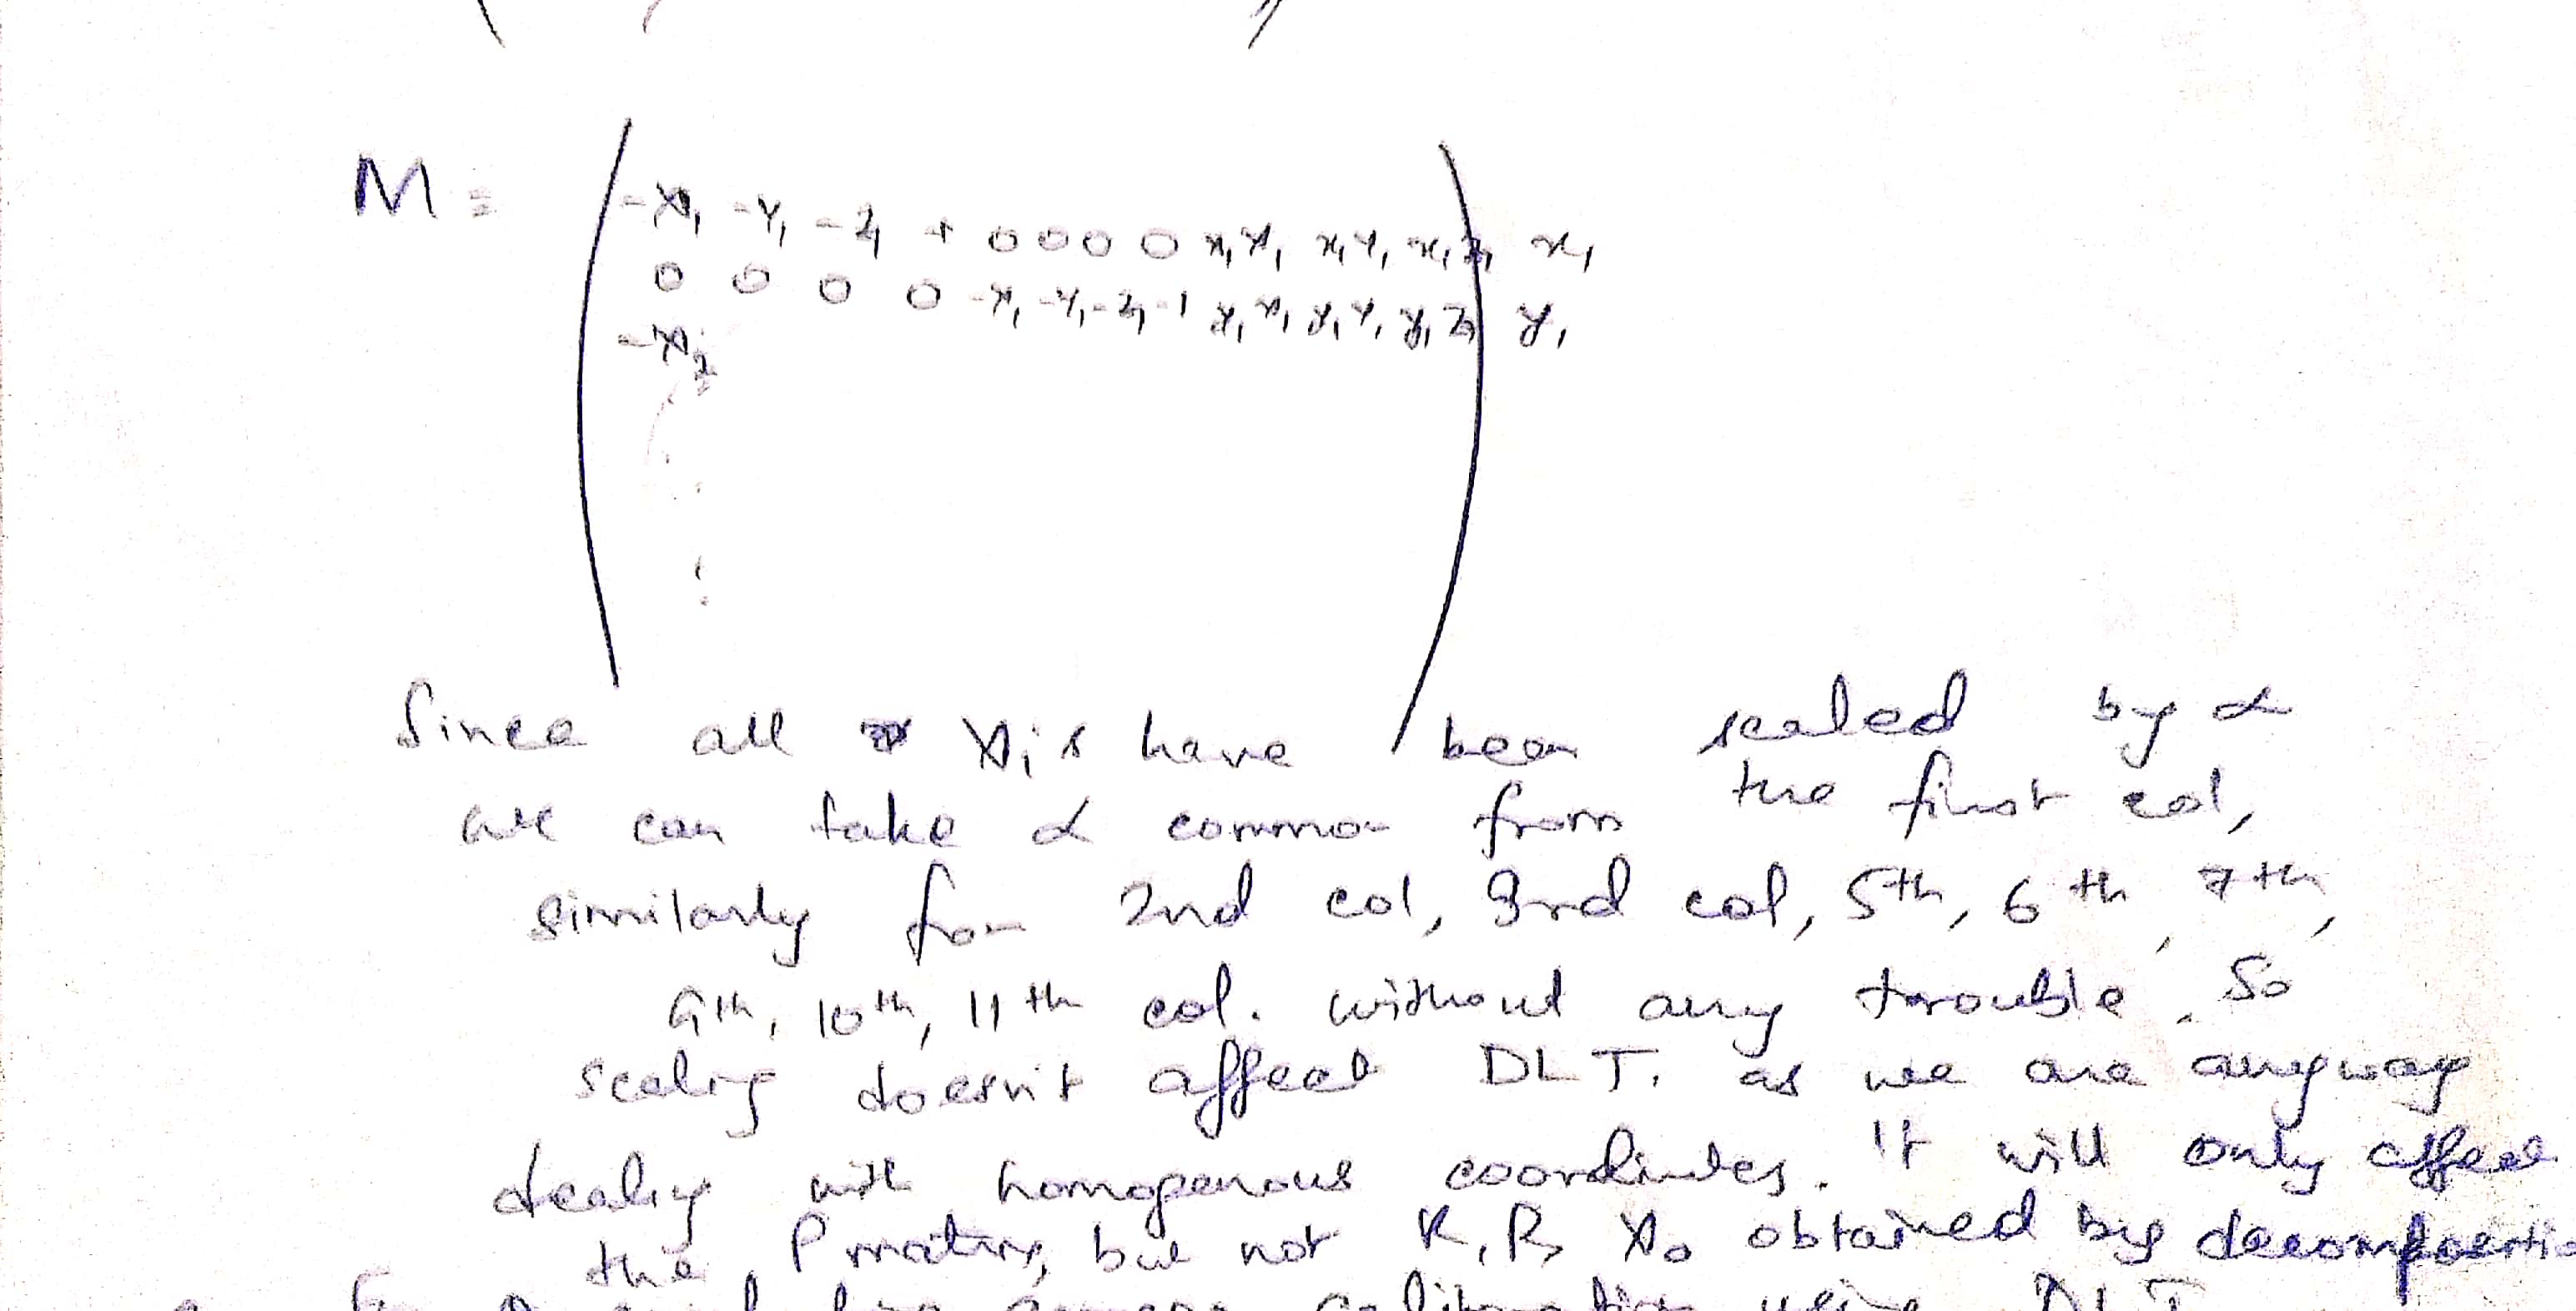 M =
-X₁ -Y₁ -Z₁ -1 0 0 0 0 x₁X₁ x₁Y₁ x₁Z₁ x₁
0 0 0 0 -X₁ -Y₁ -Z₁ -1 y₁X₁ y₁Y₁ y₁Z₁ y₁
-X₂
Since all Xᵢs have been scaled by α
we can take α common from the first col,
similarly from 2nd col, 3rd col, 5th, 6th, 7th,
9th, 10th, 11th col. without any trouble. So
scaling doesn't affect DLT. as we are anyway
dealing with homogenous coordinates. It will only affect
the P matrix, but not K, R, X₀ obtained by
DLT